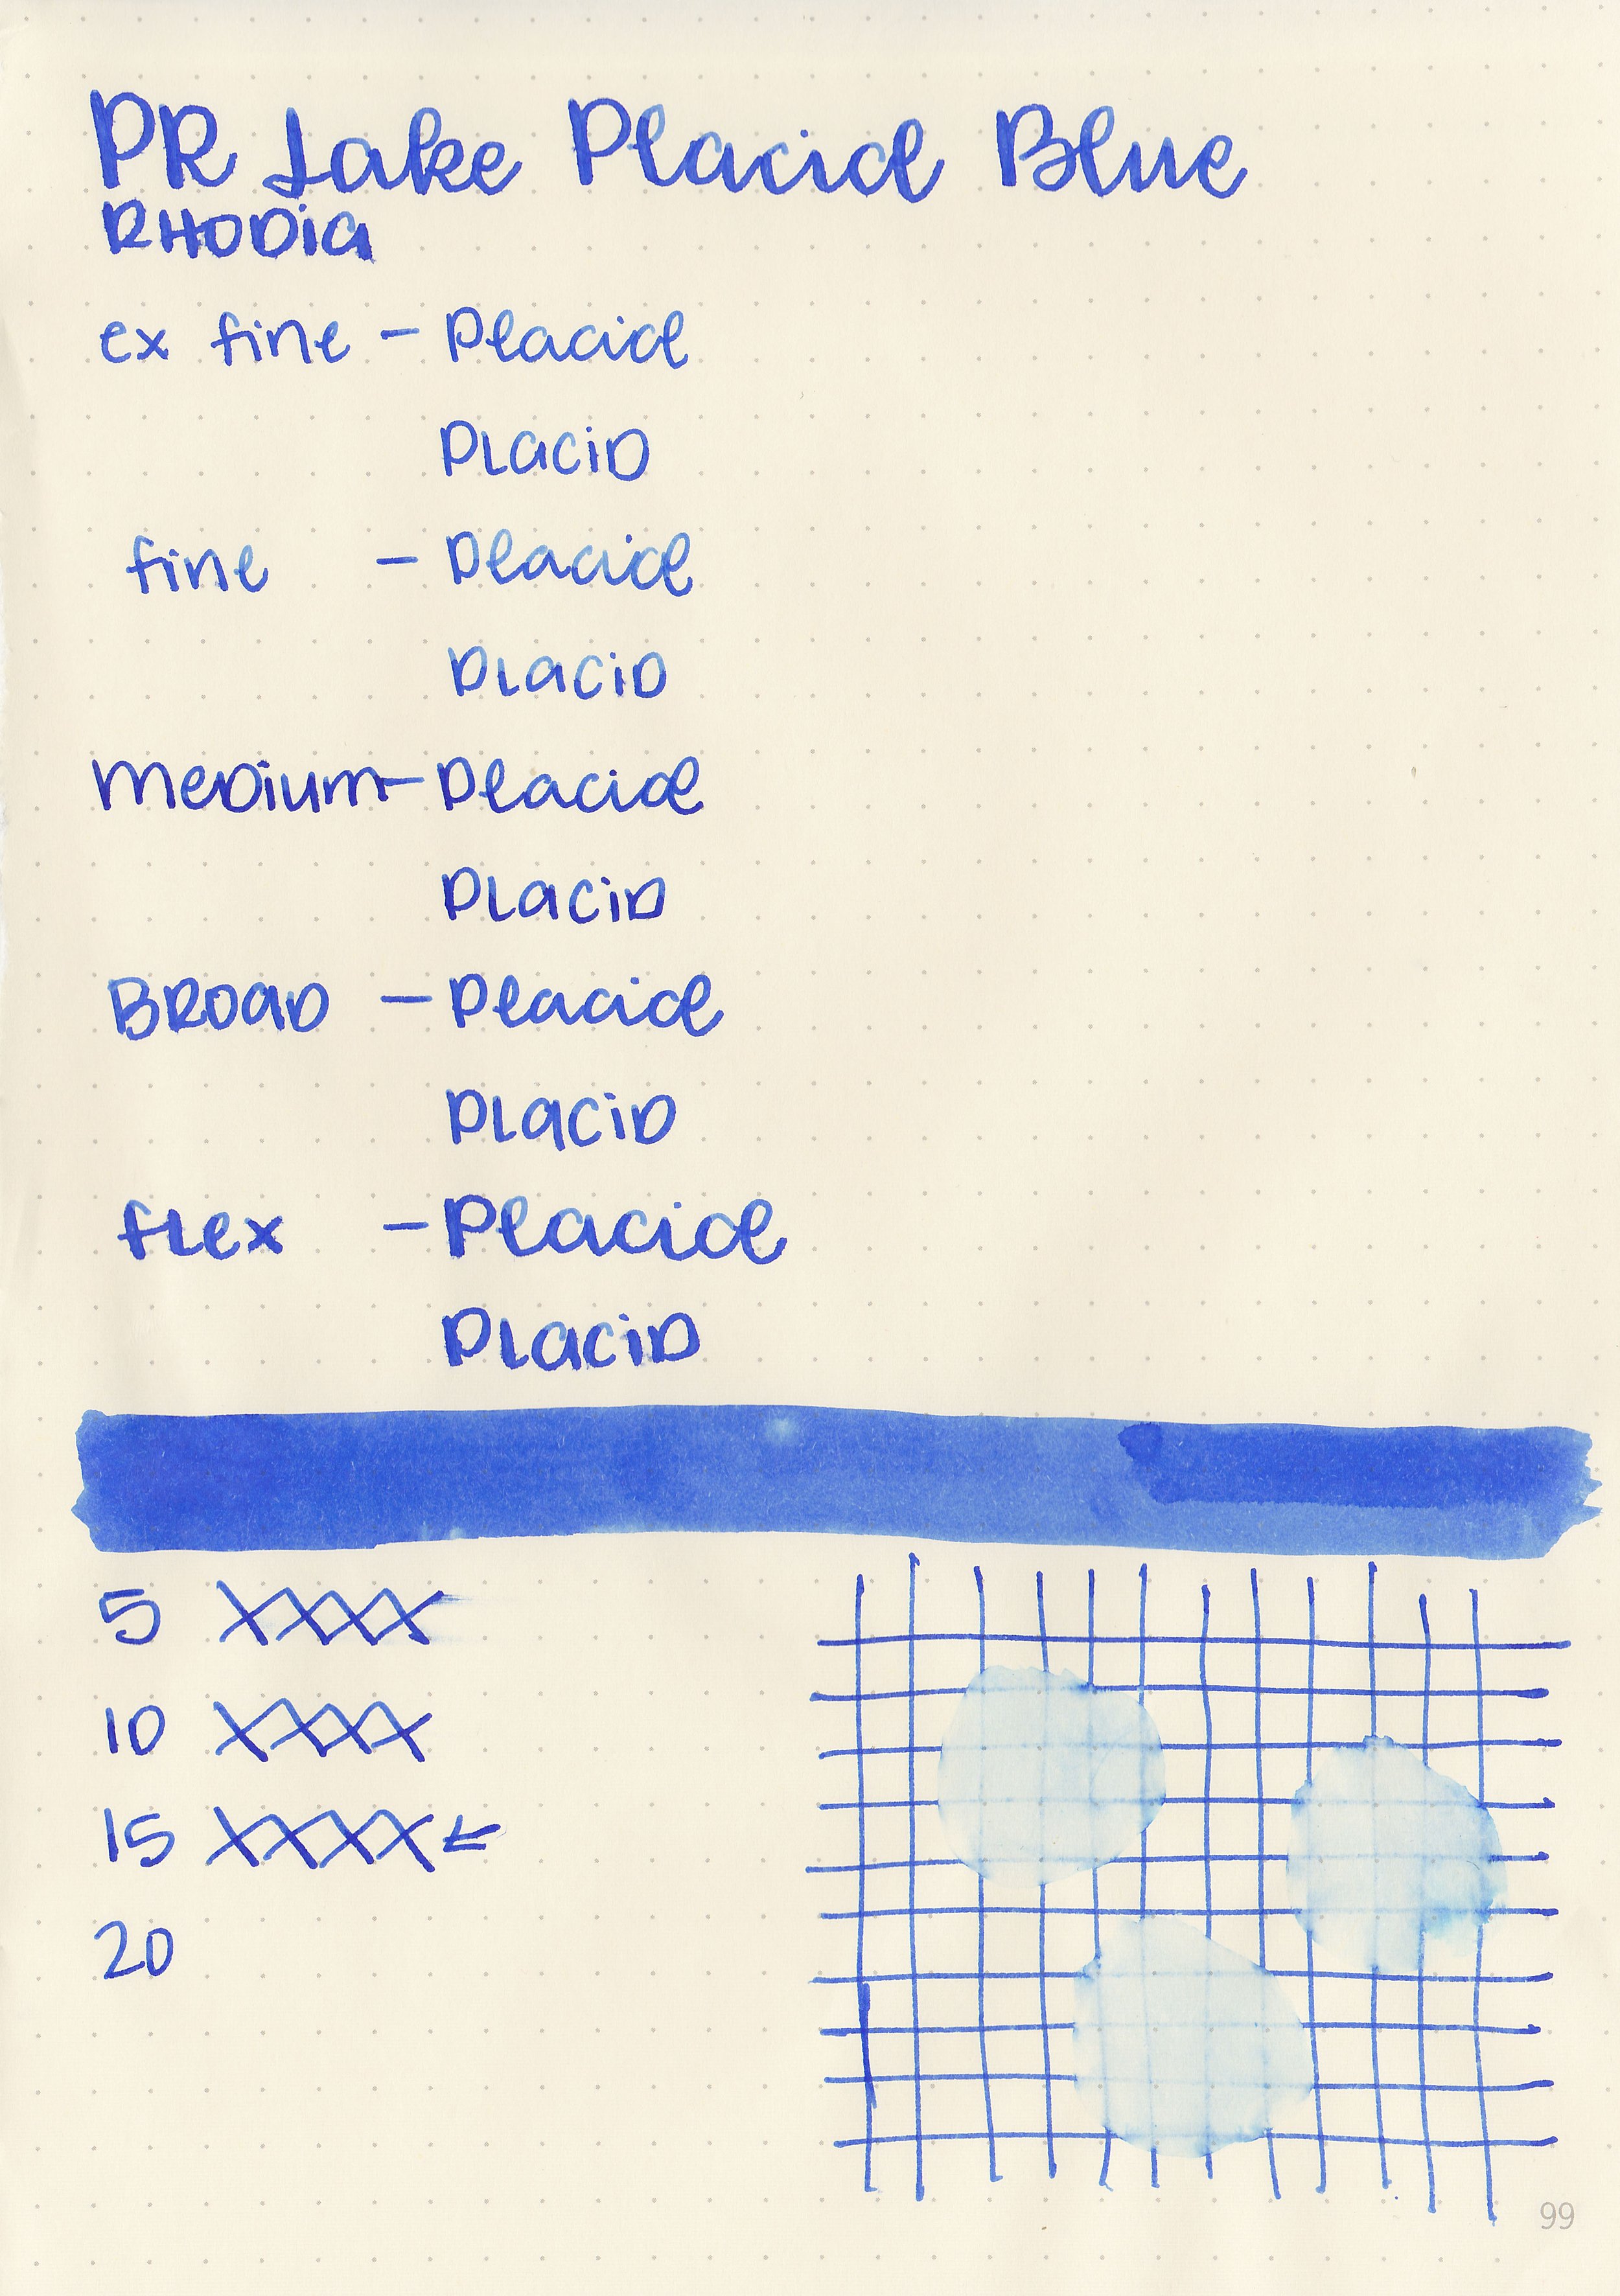 PR Lake Placid Blue
RHODia
ex fine - Placid
PLaciD
fine - Placid
PLaciD
meDium - Placid
PLaciD
BROaD - Placid
PLaciD
fLex - Placid
PLaciD
5 XXXX
10 XXXX
15 XXXX ←
20
99